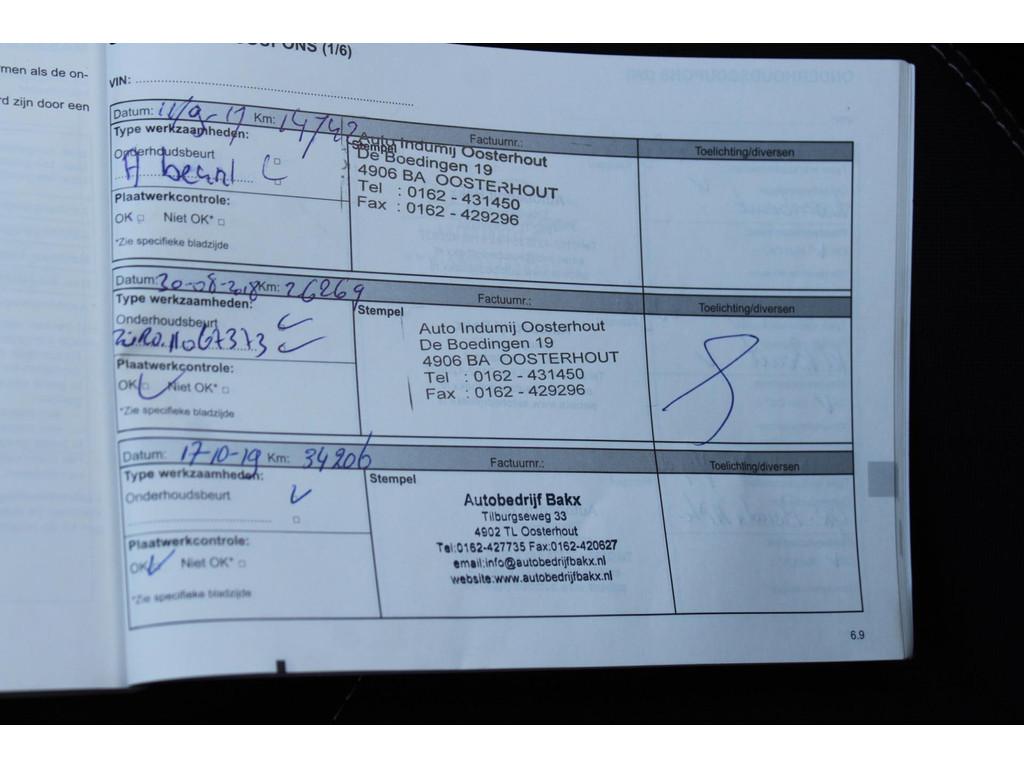 men als de on-
rd zijn door een
OUPONS (1/6)
VIN:
Datum: 11/9-17 Km: 14742 Factuurnr.:
Type werkzaamheden: Stempel Toelichting/diversen
Onderhoudsbeurt
A beurt
Auto Indumij Oosterhout
De Boedingen 19
4906 BA OOSTERHOUT
Tel : 0162 - 431450
Fax : 0162 - 429296
Plaatwerkcontrole:
OK Niet OK*
*Zie specifieke bladzijde
Datum: 30-08-2018 Km: 26269 Factuurnr.:
Type werkzaamheden: Stempel Toelichting/diversen
Onderhoudsbeurt
Auto Indumij Oosterhout
De Boedingen 19
4906 BA OOSTERHOUT
Tel : 0162 - 431450
Fax : 0162 - 429296
Plaatwerkcontrole:
OK Niet OK*
*Zie specifieke bladzijde
Datum: 17-10-19 Km: 34206 Factuurnr.:
Type werkzaamheden: Stempel Toelichting/diversen
Onderhoudsbeurt
Autobedrijf Bakx
Tilburgseweg 33
4902 TL Oosterhout
Tel:0162-427735 Fax:0162-420627
email:info@autobedrijfbakx.nl
website:www.autobedrijfbakx.nl
Plaatwerkcontrole:
OK Niet OK*
*Zie specifieke bladzijde
6.9